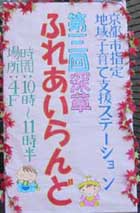 京都市指定
地域子育て支援ステーション
ふれあいらんど
時間・10時〜11時半
場所・4F